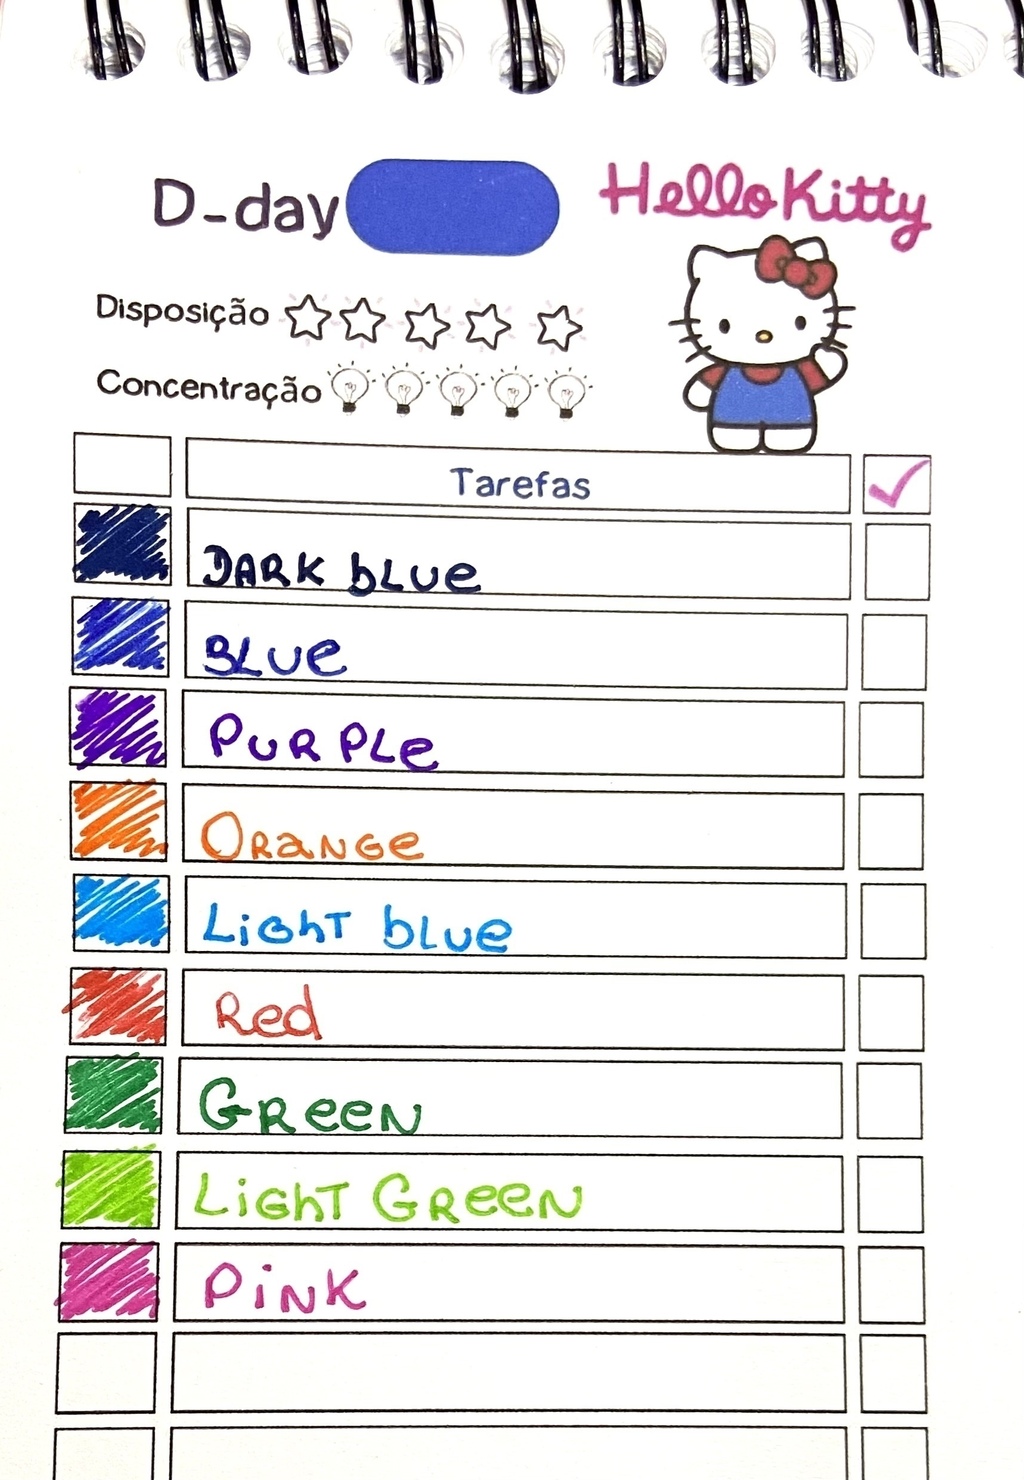 D-day
Hello Kitty
Disposição
Concentração
Tarefas
DARK bLUe
BLUe
PURPLe
ORaNGe
LiGhT bLUe
Red
GReeN
LiGhT GReeN
PiNK